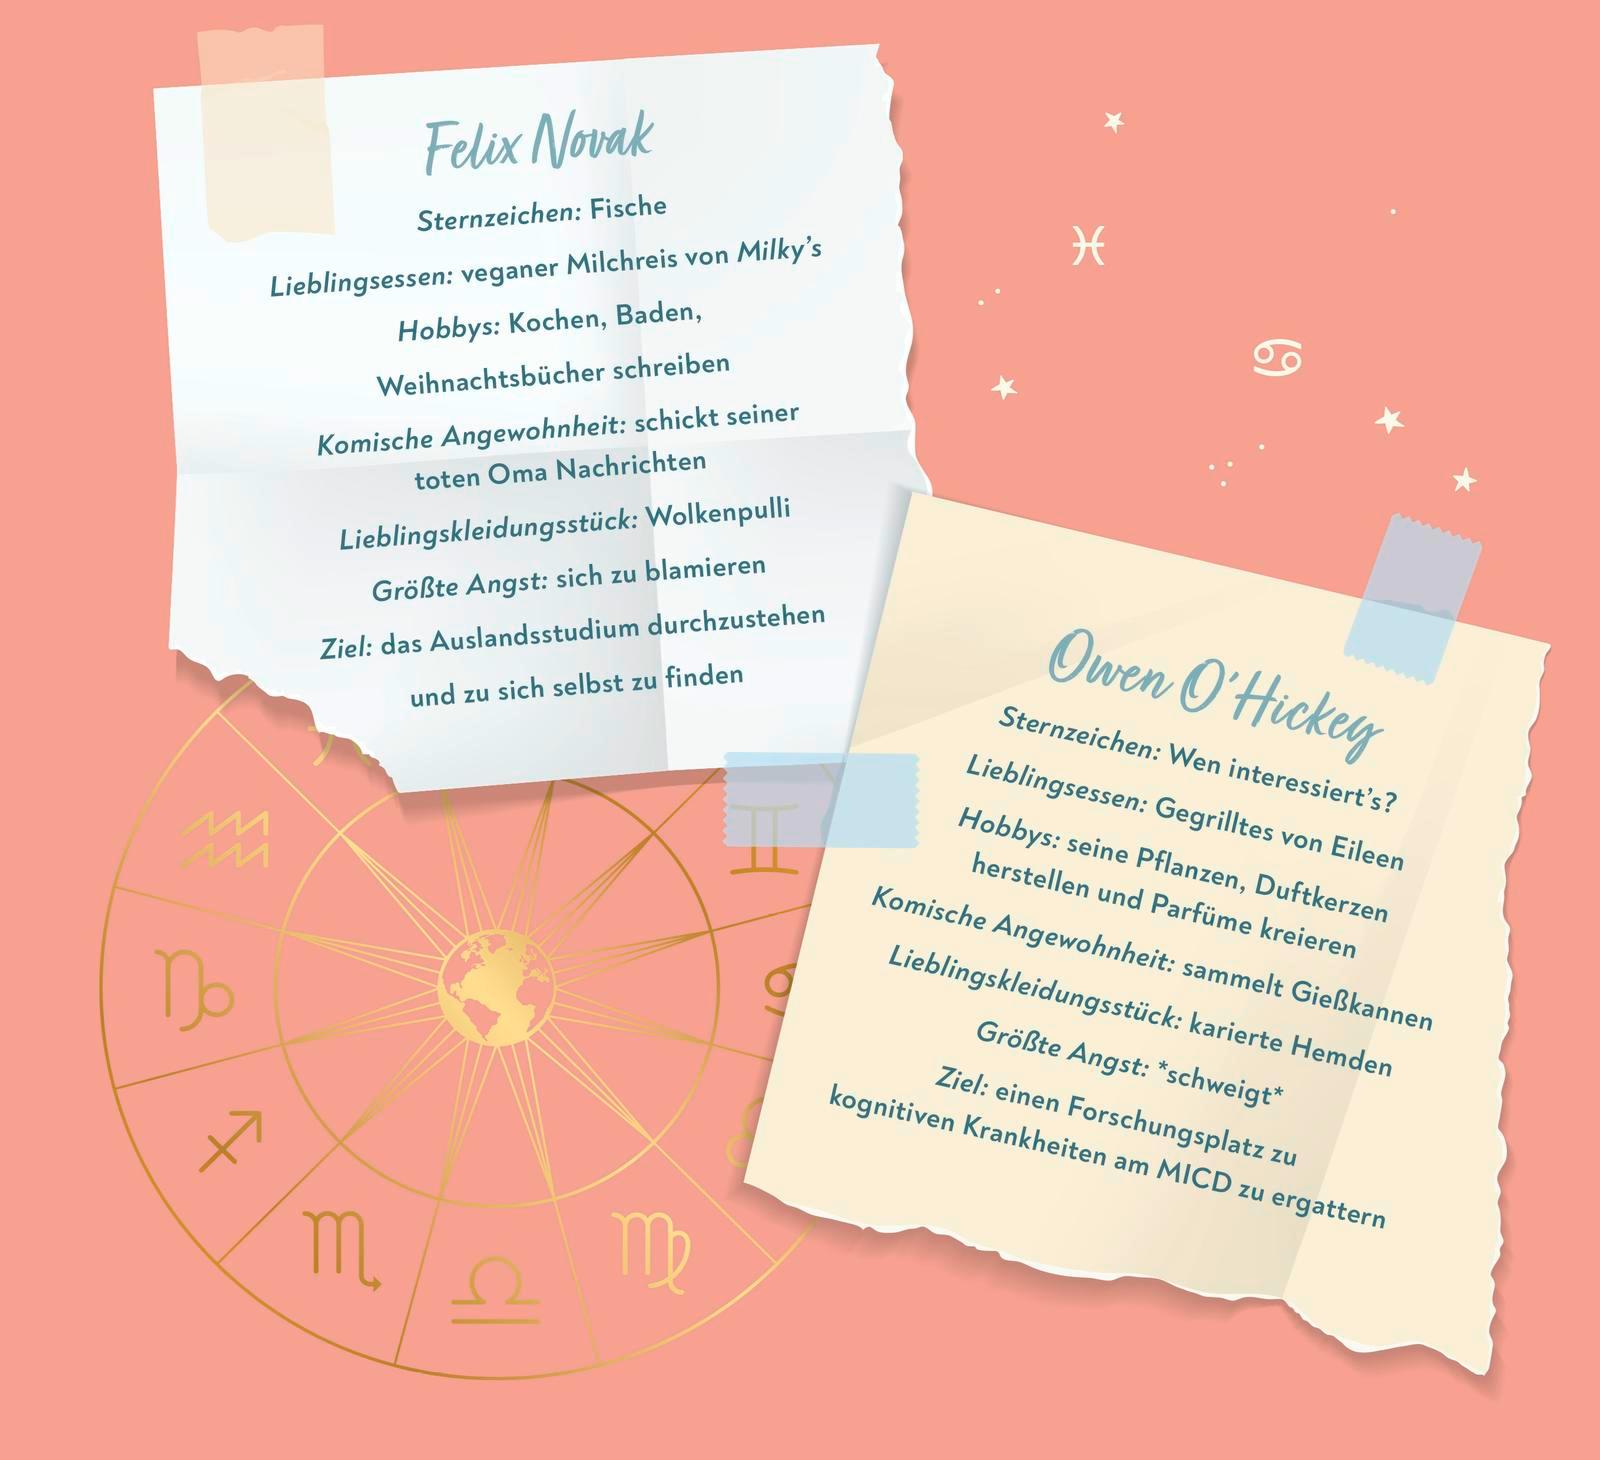 Felix Novak
Sternzeichen: Fische
Lieblingsessen: veganer Milchreis von Milky's
Hobbys: Kochen, Baden,
Weihnachtsbücher schreiben
Komische Angewohnheit: schickt seiner
toten Oma Nachrichten
Lieblingskleidungsstück: Wolkenpulli
Größte Angst: sich zu blamieren
Ziel: das Auslandsstudium durchzustehen
und zu sich selbst zu finden
Owen O'Hickey
Sternzeichen: Wen interessiert's?
Lieblingsessen: Gegrilltes von Eileen
Hobbys: seine Pflanzen, Duftkerzen
herstellen und Parfüme kreieren
Komische Angewohnheit: sammelt Gießkannen
Lieblingskleidungsstück: karierte Hemden
Größte Angst: *schweigt*
Ziel: einen Forschungsplatz zu
kognitiven Krankheiten am MICD zu ergattern